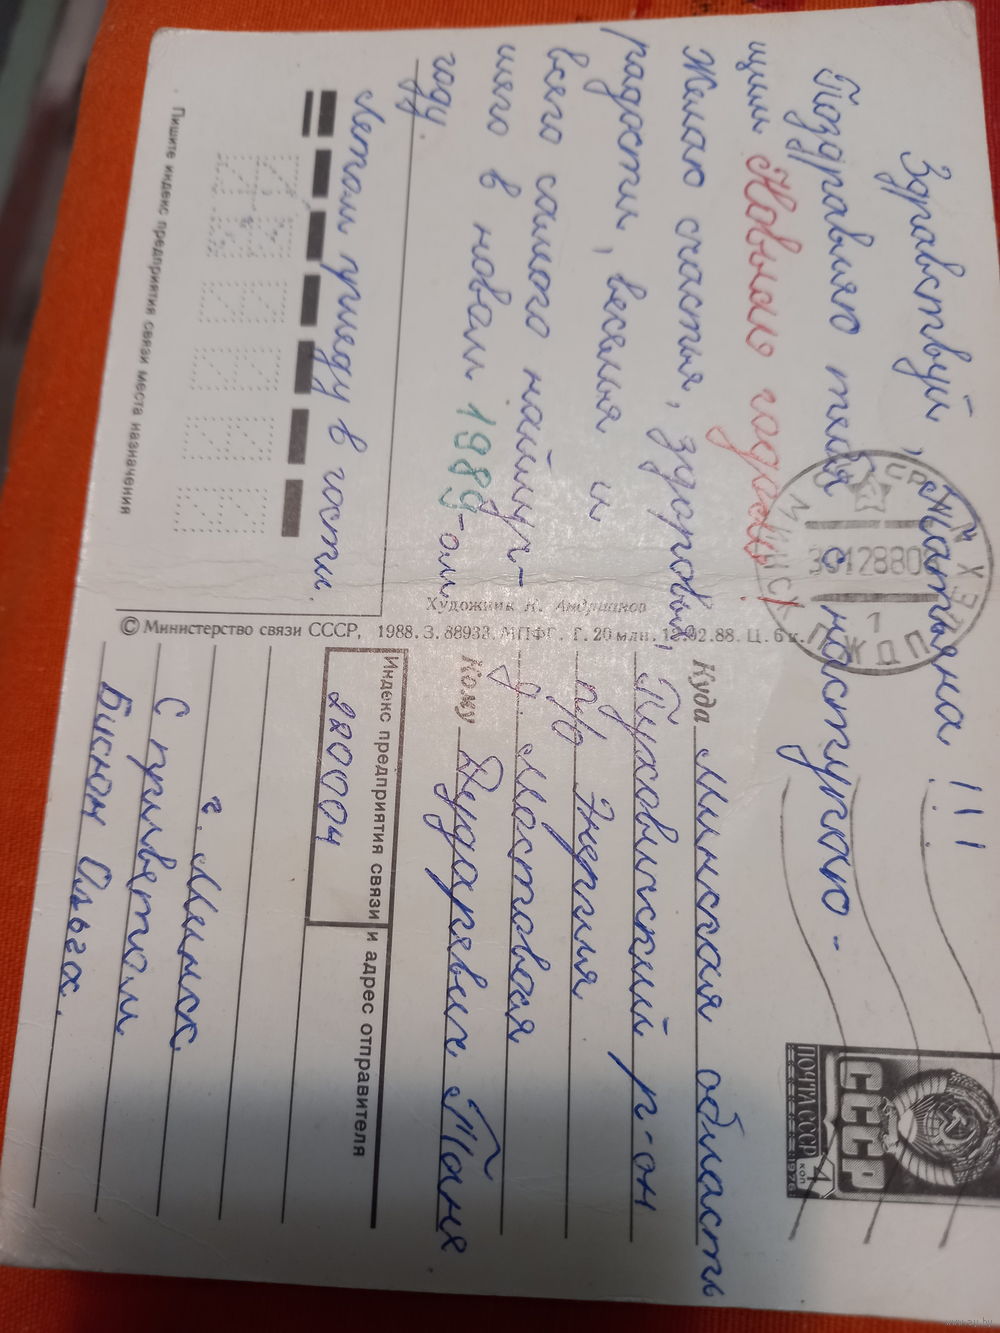 Здравствуй, Татьяна!!!
Поздравляю тебя с наступаю-
щим Новым годом!
Желаю счастья, здоровья,
радости, веселья и
всего самого наилуч-
шего в новом 1989-ом
году.
Летом приеду в гости.
Пишите индекс предприятия связи места назначения
Художник К. Андрианов
© Министерство связи СССР, 1988. З. 88933. МПФГ. Т. 20 млн. 12.02.88. Ц. 6 к.
МИНСК
ПЖДП
1
ПОЧТА СССР
1976
4 коп
СССР
Куда Минская область
Пуховичский р-он
п/о Энергия
д. Мостовая
Кому Дударевич Таня.
Индекс предприятия связи и адрес отправителя
220004
г. Минск
С приветом
Бикном Ольга.
www.ay.by